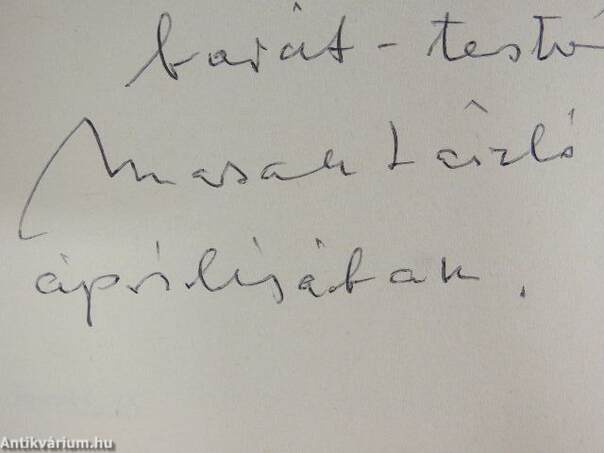 barát - testv
László
áprilisában.
Antikvárium.hu